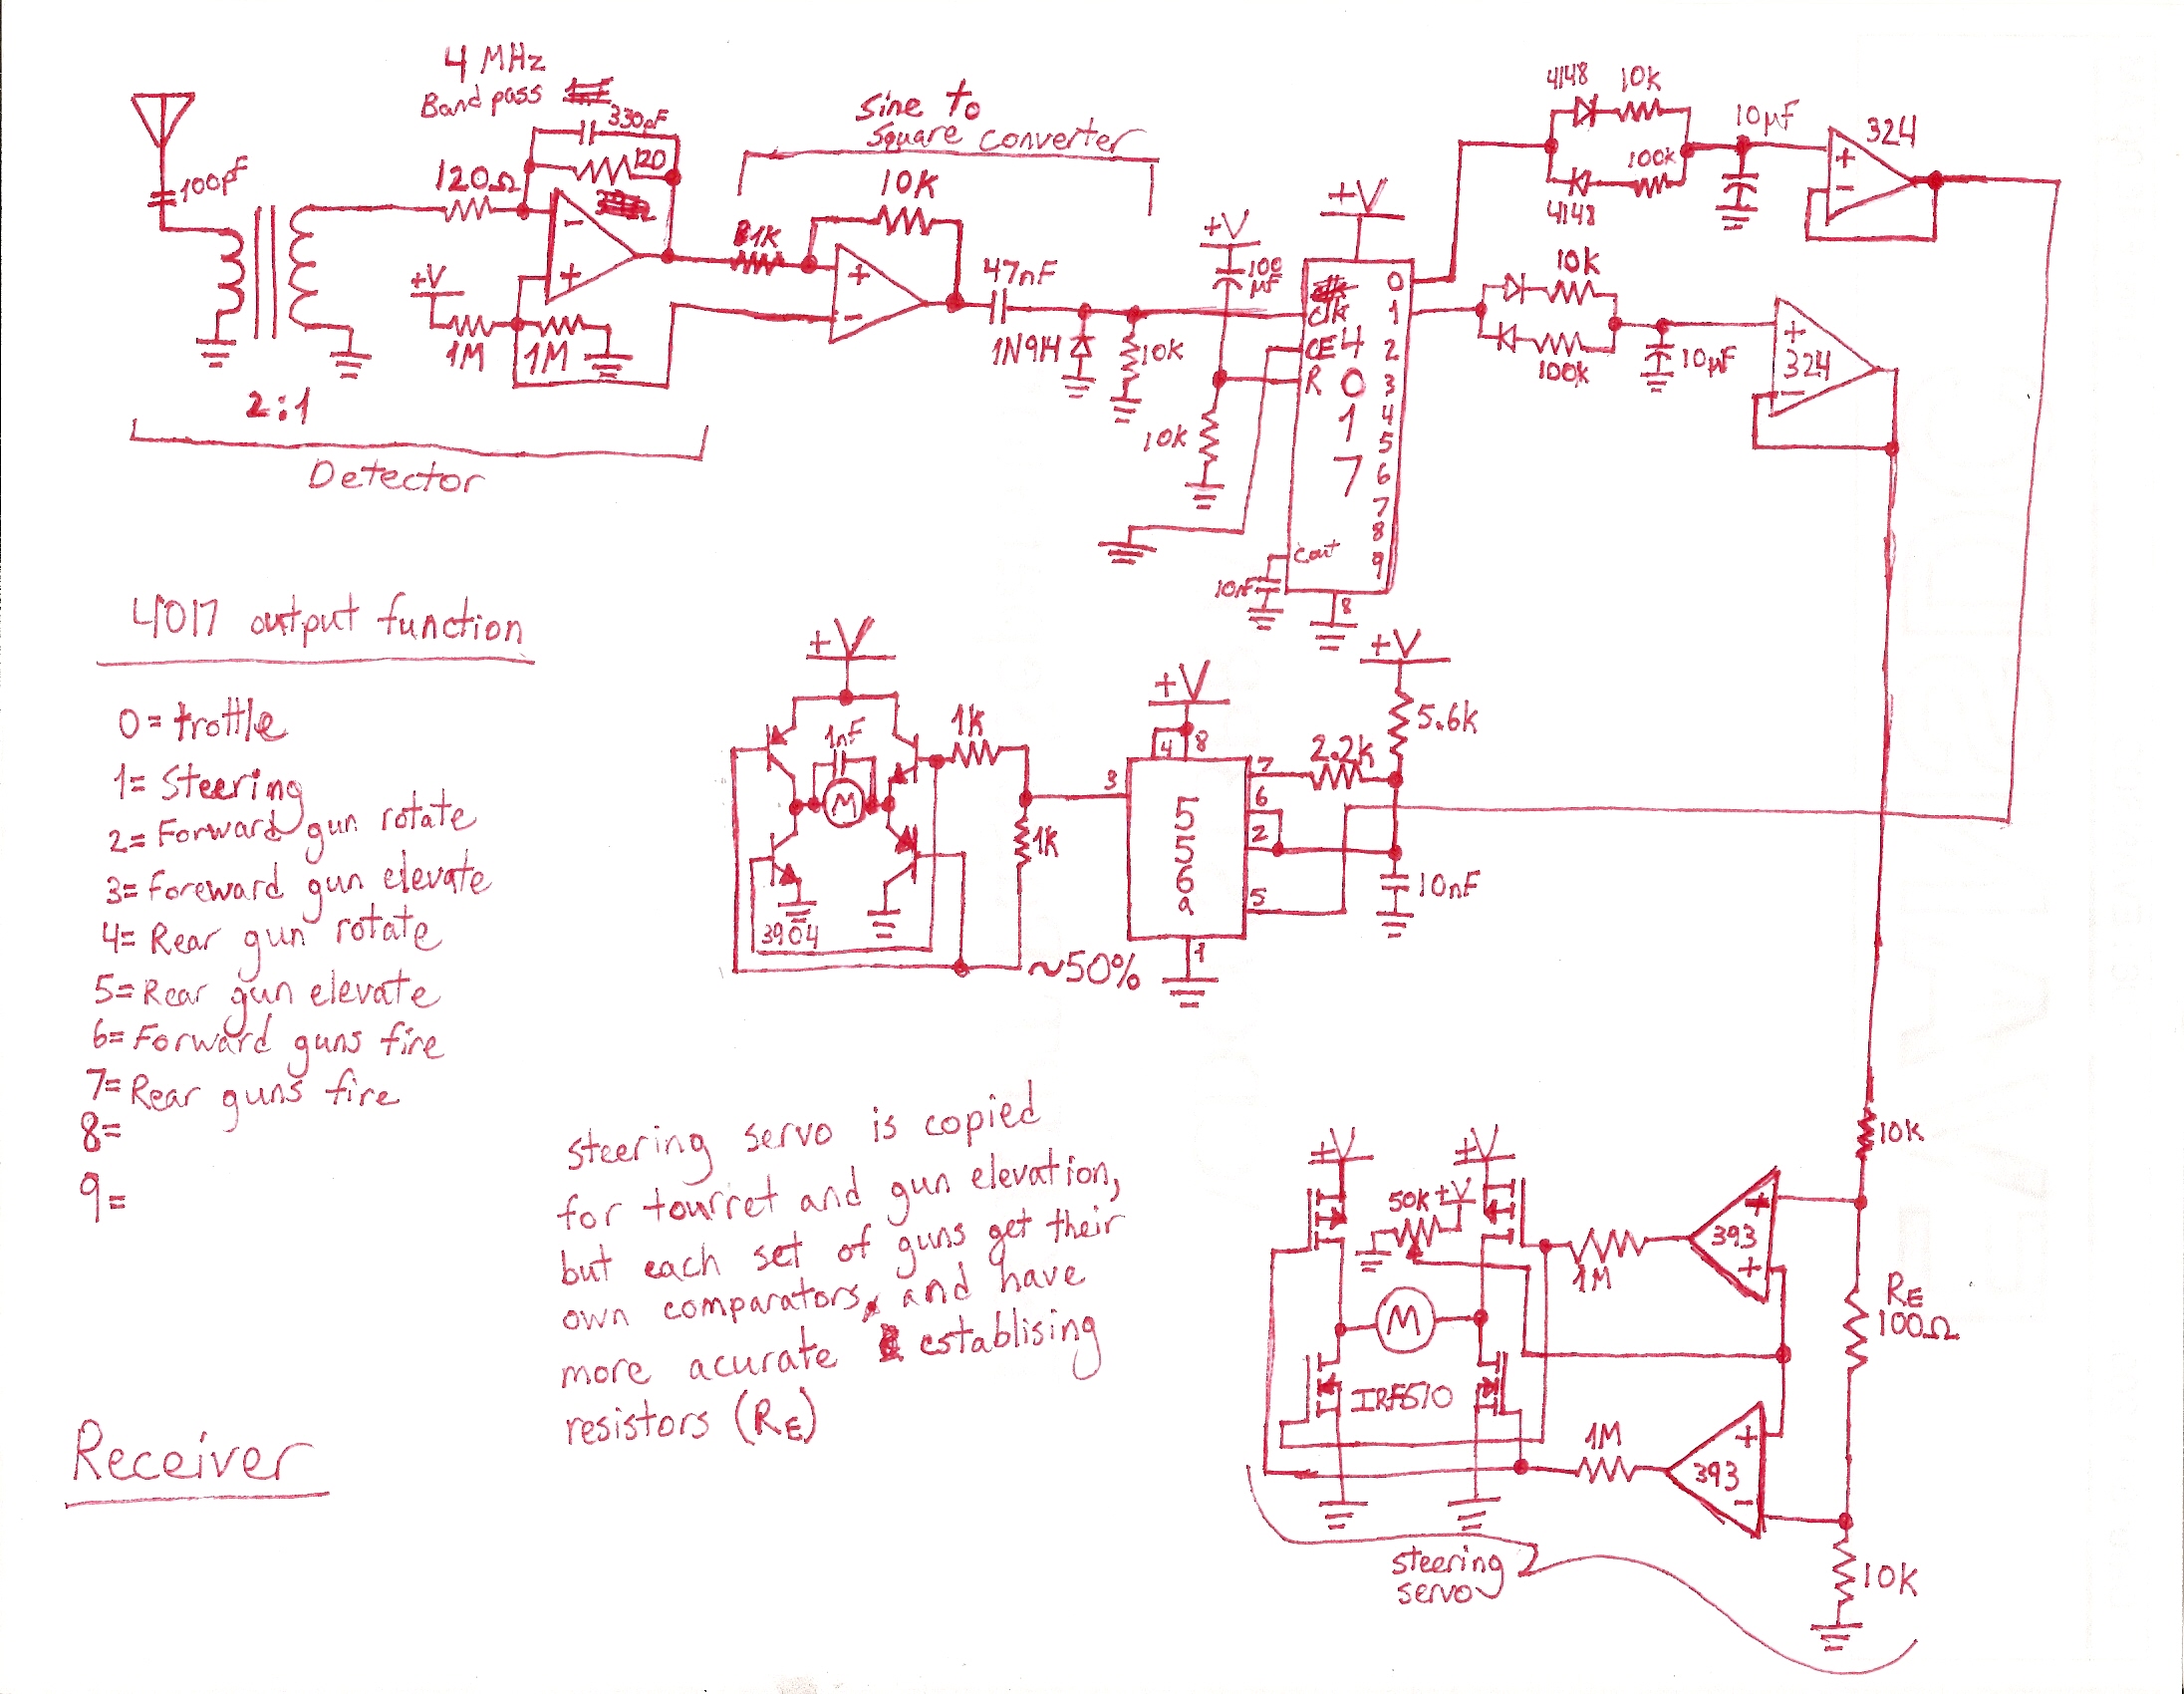 4 MHz
Band pass
330pF
120
100pF
120Ω
+V
1M
1M
2:1
Detector
Sine to
Square converter
10K
1K
47nF
1N914
10k
+V
100
µF
10k
+V
clk
CE
R
4
0
1
7
0
1
2
3
4
5
6
7
8
9
cout
10nF
8
4148
10k
100k
4148
10µF
+
-
324
10k
100k
10µF
+
324
-
4017 output function
0= trottle
1= Steering
2= Forward gun rotate
3= Foreward gun elevate
4= Rear gun rotate
5= Rear gun elevate
6= Forward guns fire
7= Rear guns fire
8=
9=
+V
1nF
M
1K
1K
3904
~50%
+V
4
8
3
5
5
6
a
7
6
2
5
1
2.2k
+V
5.6k
10nF
steering servo is copied
for tourret and gun elevation,
but each set of guns get their
own comparators, and have
more acurate establising
resistors (RE)
Receiver
+V
+V
50k
+V
M
IRF510
1M
393
+
+
1M
393
+
-
10k
RE
100Ω
10K
steering
servo